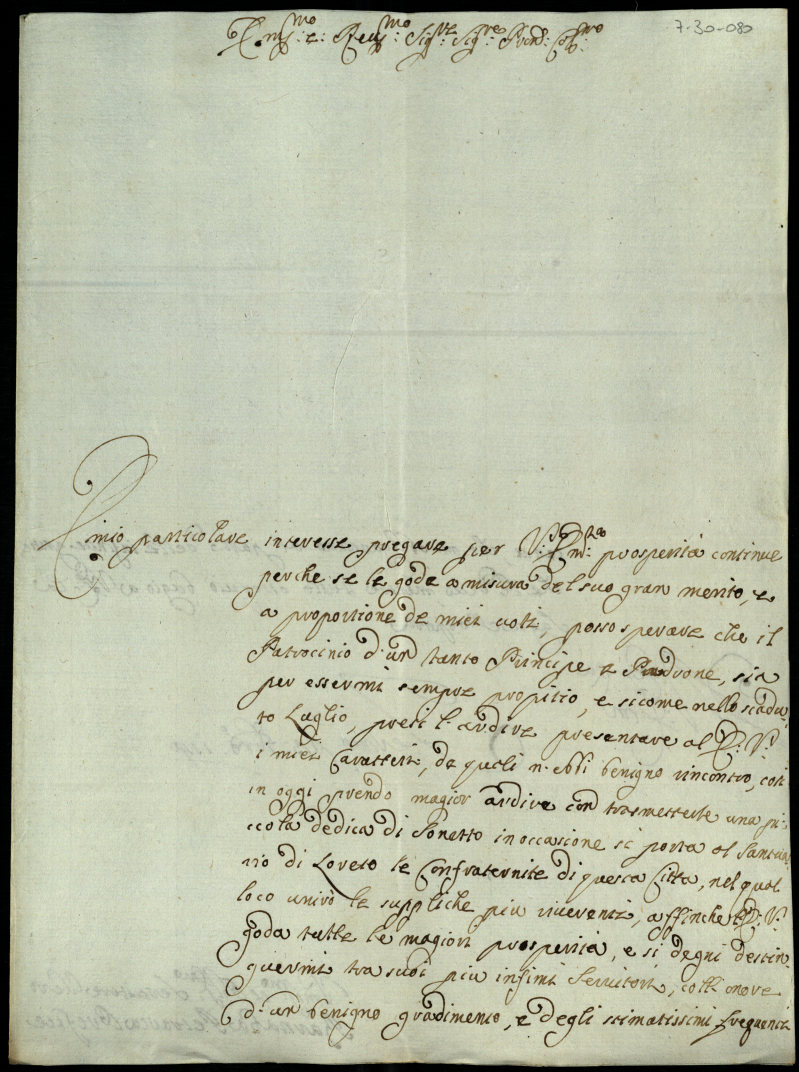 7-30-080
Em.mo e: Reu.mo Sig.re Sig.re Prẽn: Col.mo
E mio particolare interesse pregare per V.ra Em.za prosperità continue
perche se le goda a misura del suo gran merito, e
a proportione de miei voti, posso sperare che il
Patrocinio d'un tanto Principe e Padrone, sia
per essermi sempre propitio, e sicome nello scadu-
to Luglio, presi l'ardire presentare al E: V:
i miei Caratteri, da quali n'ebbi benigno rincontro, così
in oggi prendo magior ardire con trasmetterle una pi-
ccola dedica di Sonetto in occasione si porta al Santua-
rio di Loreto le Confraternite di questa Citta, nel qual
loco unirò le suppliche piu riverenti, affinche E: V:
goda tutte le magiori prosperità, e si degni destin
guermi tra suoi piu infimi Servitori, coll'onore
d'un benigno gradimento, e degli stimatissimi frequenti